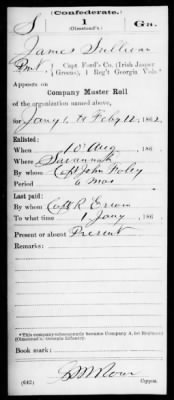 (Confederate.)
S 1 Ga.
(Olmstead's)
James Sullivan
Pvt, Capt. Ford's Co. (Irish Jasper
Greens), 1 Reg't Georgia Vols.*
Appears on
Company Muster Roll
of the organization named above,
for Jany 1 to Feby 12, 1862.
Enlisted:
When 10 Aug, 186
Where Savannah
By whom Capt John Foley
Period 6 mos
Last paid:
By whom Capt R. Erwin
To what time 1 Jany, 186
Present or absent Present
Remarks:
*This company subsequently became Company A, 1st Regiment
(Olmstead's) Georgia Infantry.
Book mark:
(642)
Copyist.